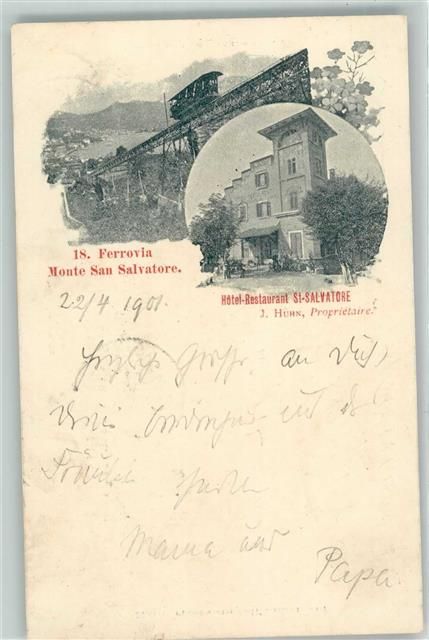 18. Ferrovia
Monte San Salvatore.
Hôtel-Restaurant St-SALVATORE
J. HÜHN, Propriétaire.
22/4 1901.
Herzliche Grüsse an Dich,
und
Fräulein
Mama und
Papa